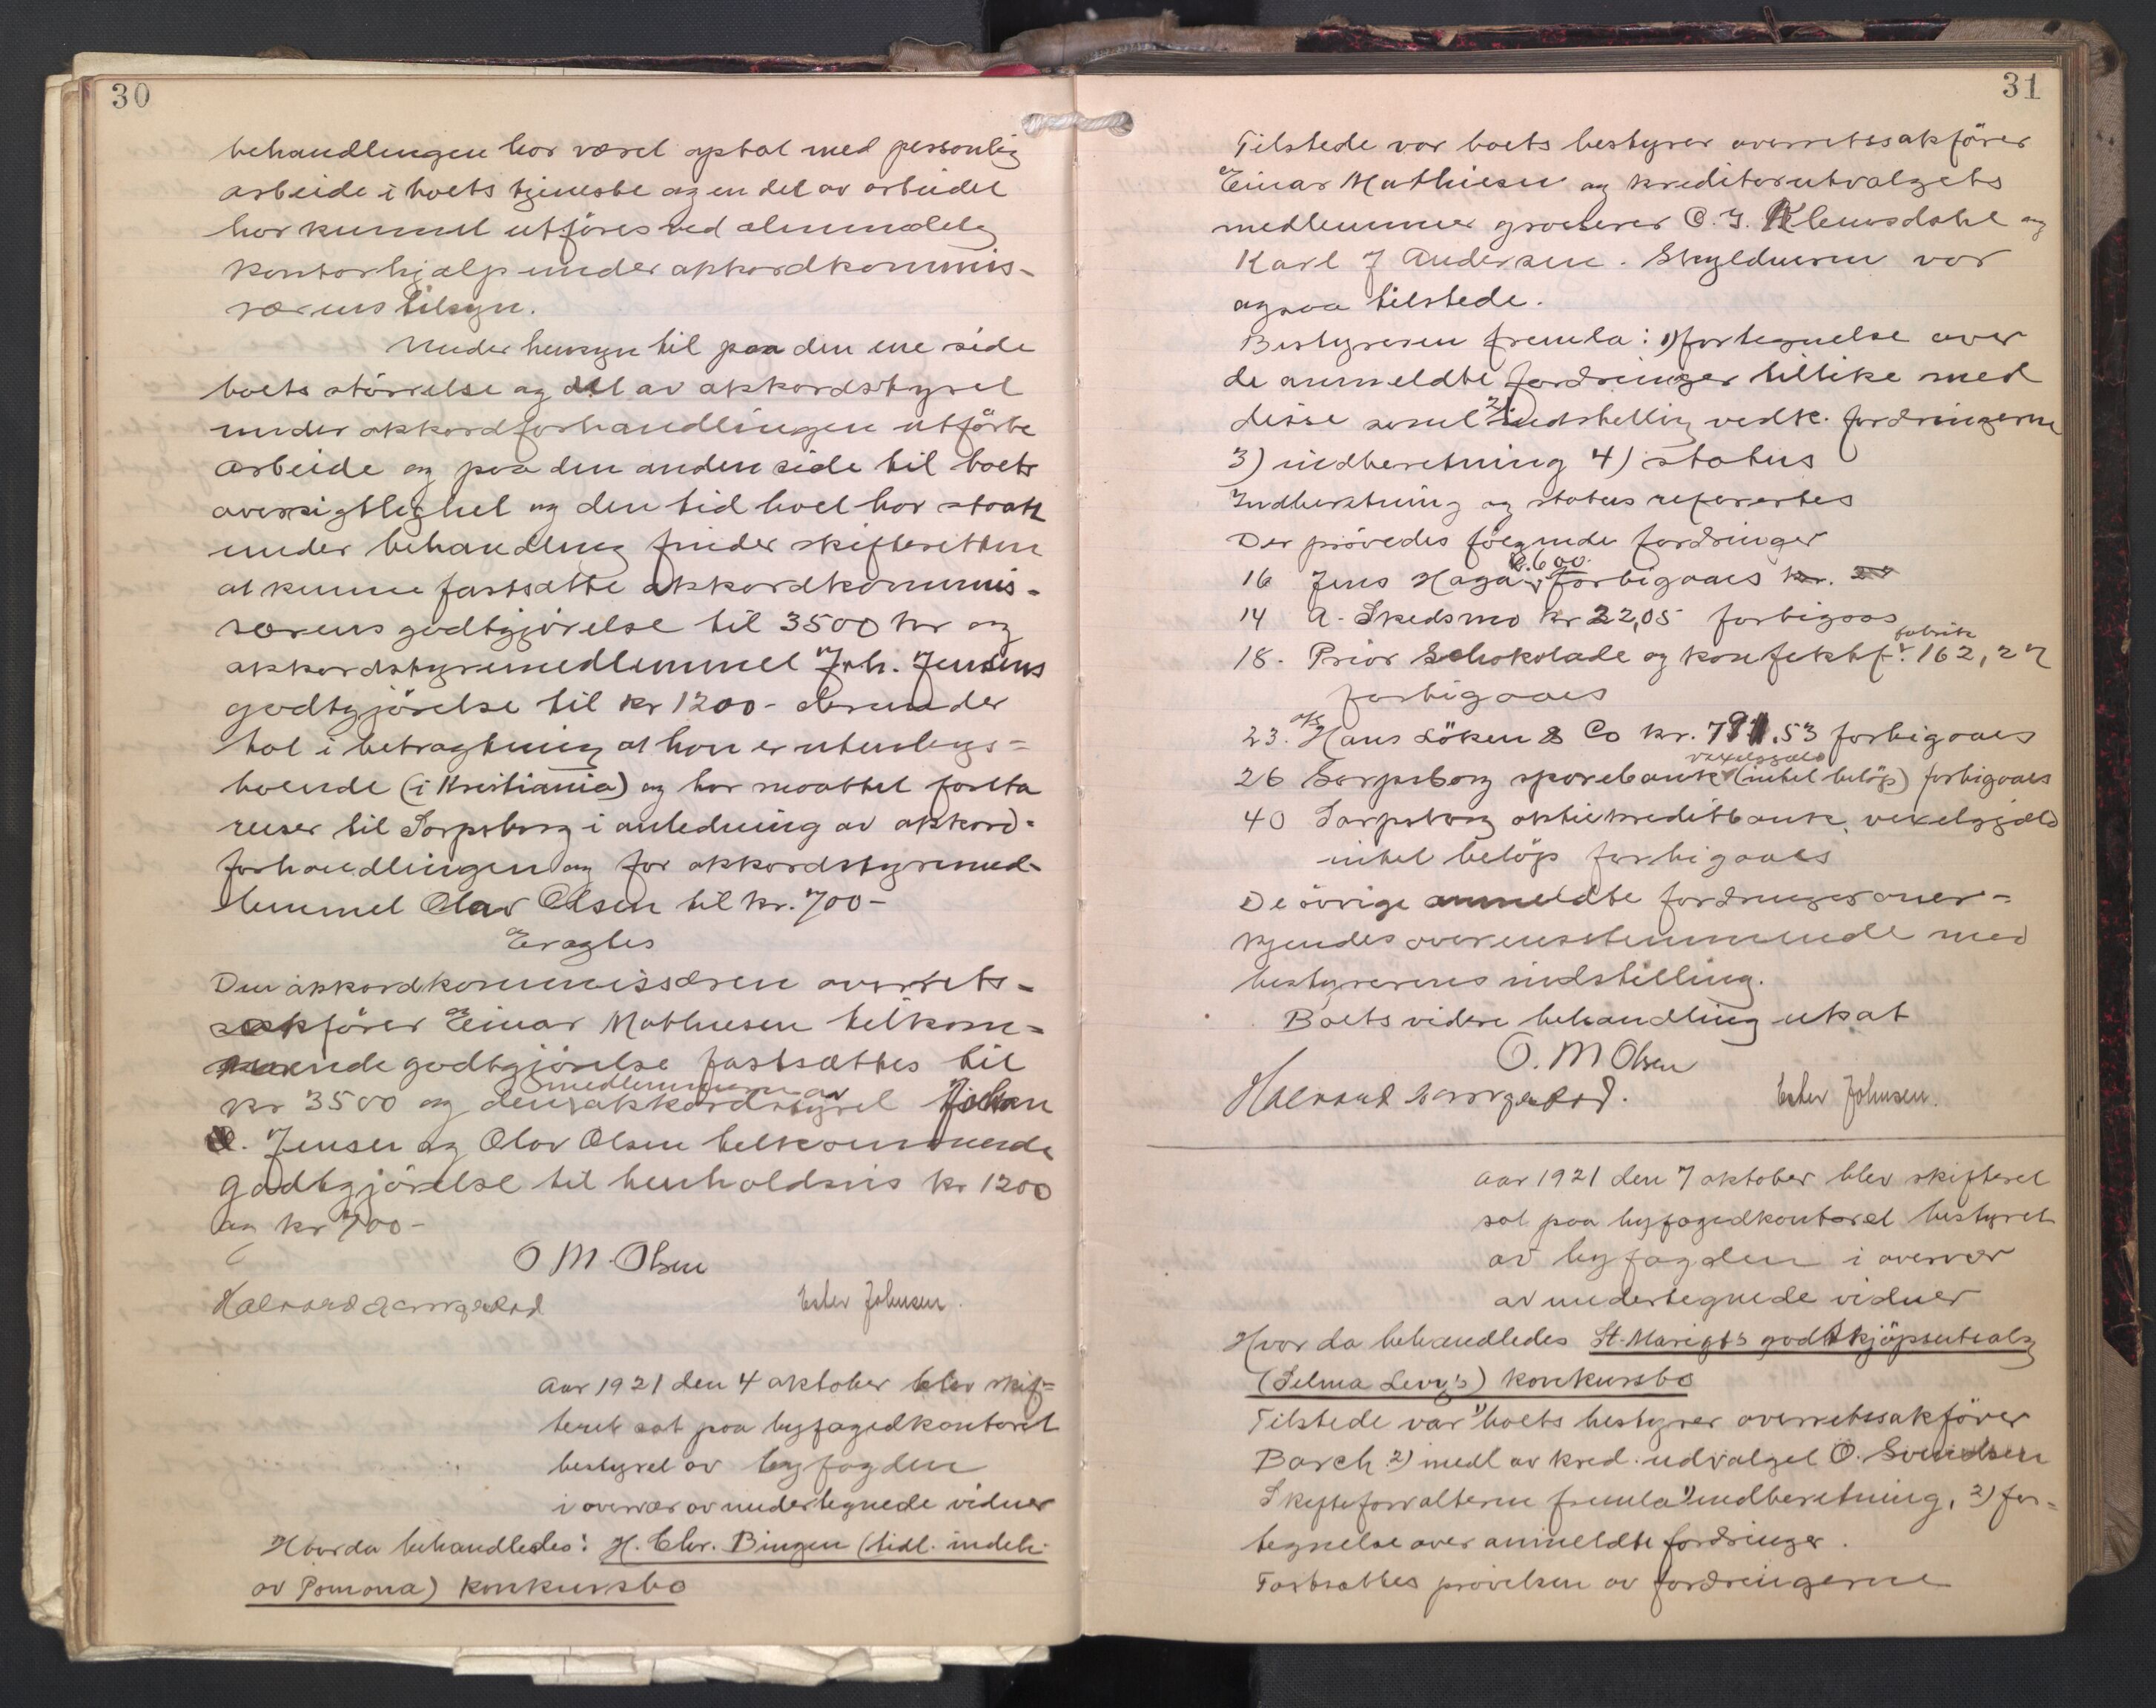 30
behandlingen har været optat med personlig
arbeide i boets tjeneste og en del av arbeidet
har kunnet utføres ved almindelig
kontorhjælp under akkordkommis-
særens tilsyn.
Under hensyn til paa den ene side
boets størrelse og det av akkordstyret
under akkordforhandlingen utførte
arbeide og paa den anden side til boets
oversigtlighet og den tid boet har staat
under behandling finder skifteretten
at kunne fastsætte akkordkommis-
særens godtgjørelse til 3500 kr og
akkordstyremedlemmet Joh. Jensens
godtgjörelse til kr 1200- derunder
tat i betragtning at han er utenbygs=
boende (i Kristiania) og har maattet foreta
reiser til Sarpsborg i anledning av akkord=
forhandlingen og for akkordstyremed-
lemmet Olav Olsen til kr. 700-
Eragtes
Den akkordkommissæren overrets-
sakförer Einar Mathiesen tilkom=
mende godtgjörelse fastsættes til
kr 3500 og den medlemmerne av akkordstyret Johan
O. Jensen og Olav Olsen tilkommende
godtgjörelse til henholdsvis kr 1200
og kr 700-
O M Olsen
Halvard Ester Johnsen.
Aar 1921 den 4 oktober blev skif=
teret sat paa byfogedkontoret
bestyret av byfogden
i overvær av undertegnede vidner
Hvor da behandledes: H. Chr. Bingen (tidl. indeh.
av Pomona) konkursbo
31
Tilstede var boets bestyrer overretssakförer
Einar Mathiesen og kreditorutvalgets
medlemmer grosserer C. J. Klemsdahl og
Karl J Andersen. Skyldneren var
ogsaa tilstede.
Bestyreren fremla: 1) fortegnelse over
de anmeldte fordringer tillike med
disse samt 2) indstilling vedk. fordringerne
3) indberetning 4) status
Indberetning og status referertes
Der prövedes fölgende fordringer
16 Jens Haga kr. 600. forbigaaes kr.
14 A. Skedsmo kr 22,05 forbigaas
18. Prior Schokolade og konfektf. fabrik 162,27
forbigaaes
23. A/S Hans Löken & Co kr. 791.53 forbigaaes
26 Sarpsborg sparebank vexelgjæld (intet belöp) forbigaaes
40 Sarpsborg aktiekreditbank, vexelgjæld
intet belöp forbigaaes
De övrige anmeldte fordringer aner=
kjendes overensstemmende med
bestyrerens indstilling.
Boets videre behandling utsat
O. M Olsen
Halvard Ester Johnsen.
Aar 1921 den 7 oktober blev skifteret
sat paa byfogedkontoret bestyret
av byfogden i overvær
av undertegnede vidner
Hvor da behandledes St. Marigt's godtkjöpsutsalg
(Selma Levy's) konkursbo
Tilstede var 1) boets bestyrer overretssakförer
Borch 2) medl av kred. udvalget O. Svendsen
Skifteforvalteren fremla 1) indberetning, 2) for=
tegnelse over anmeldte fordringer.
Fortsattes prövelsen av fordringerne